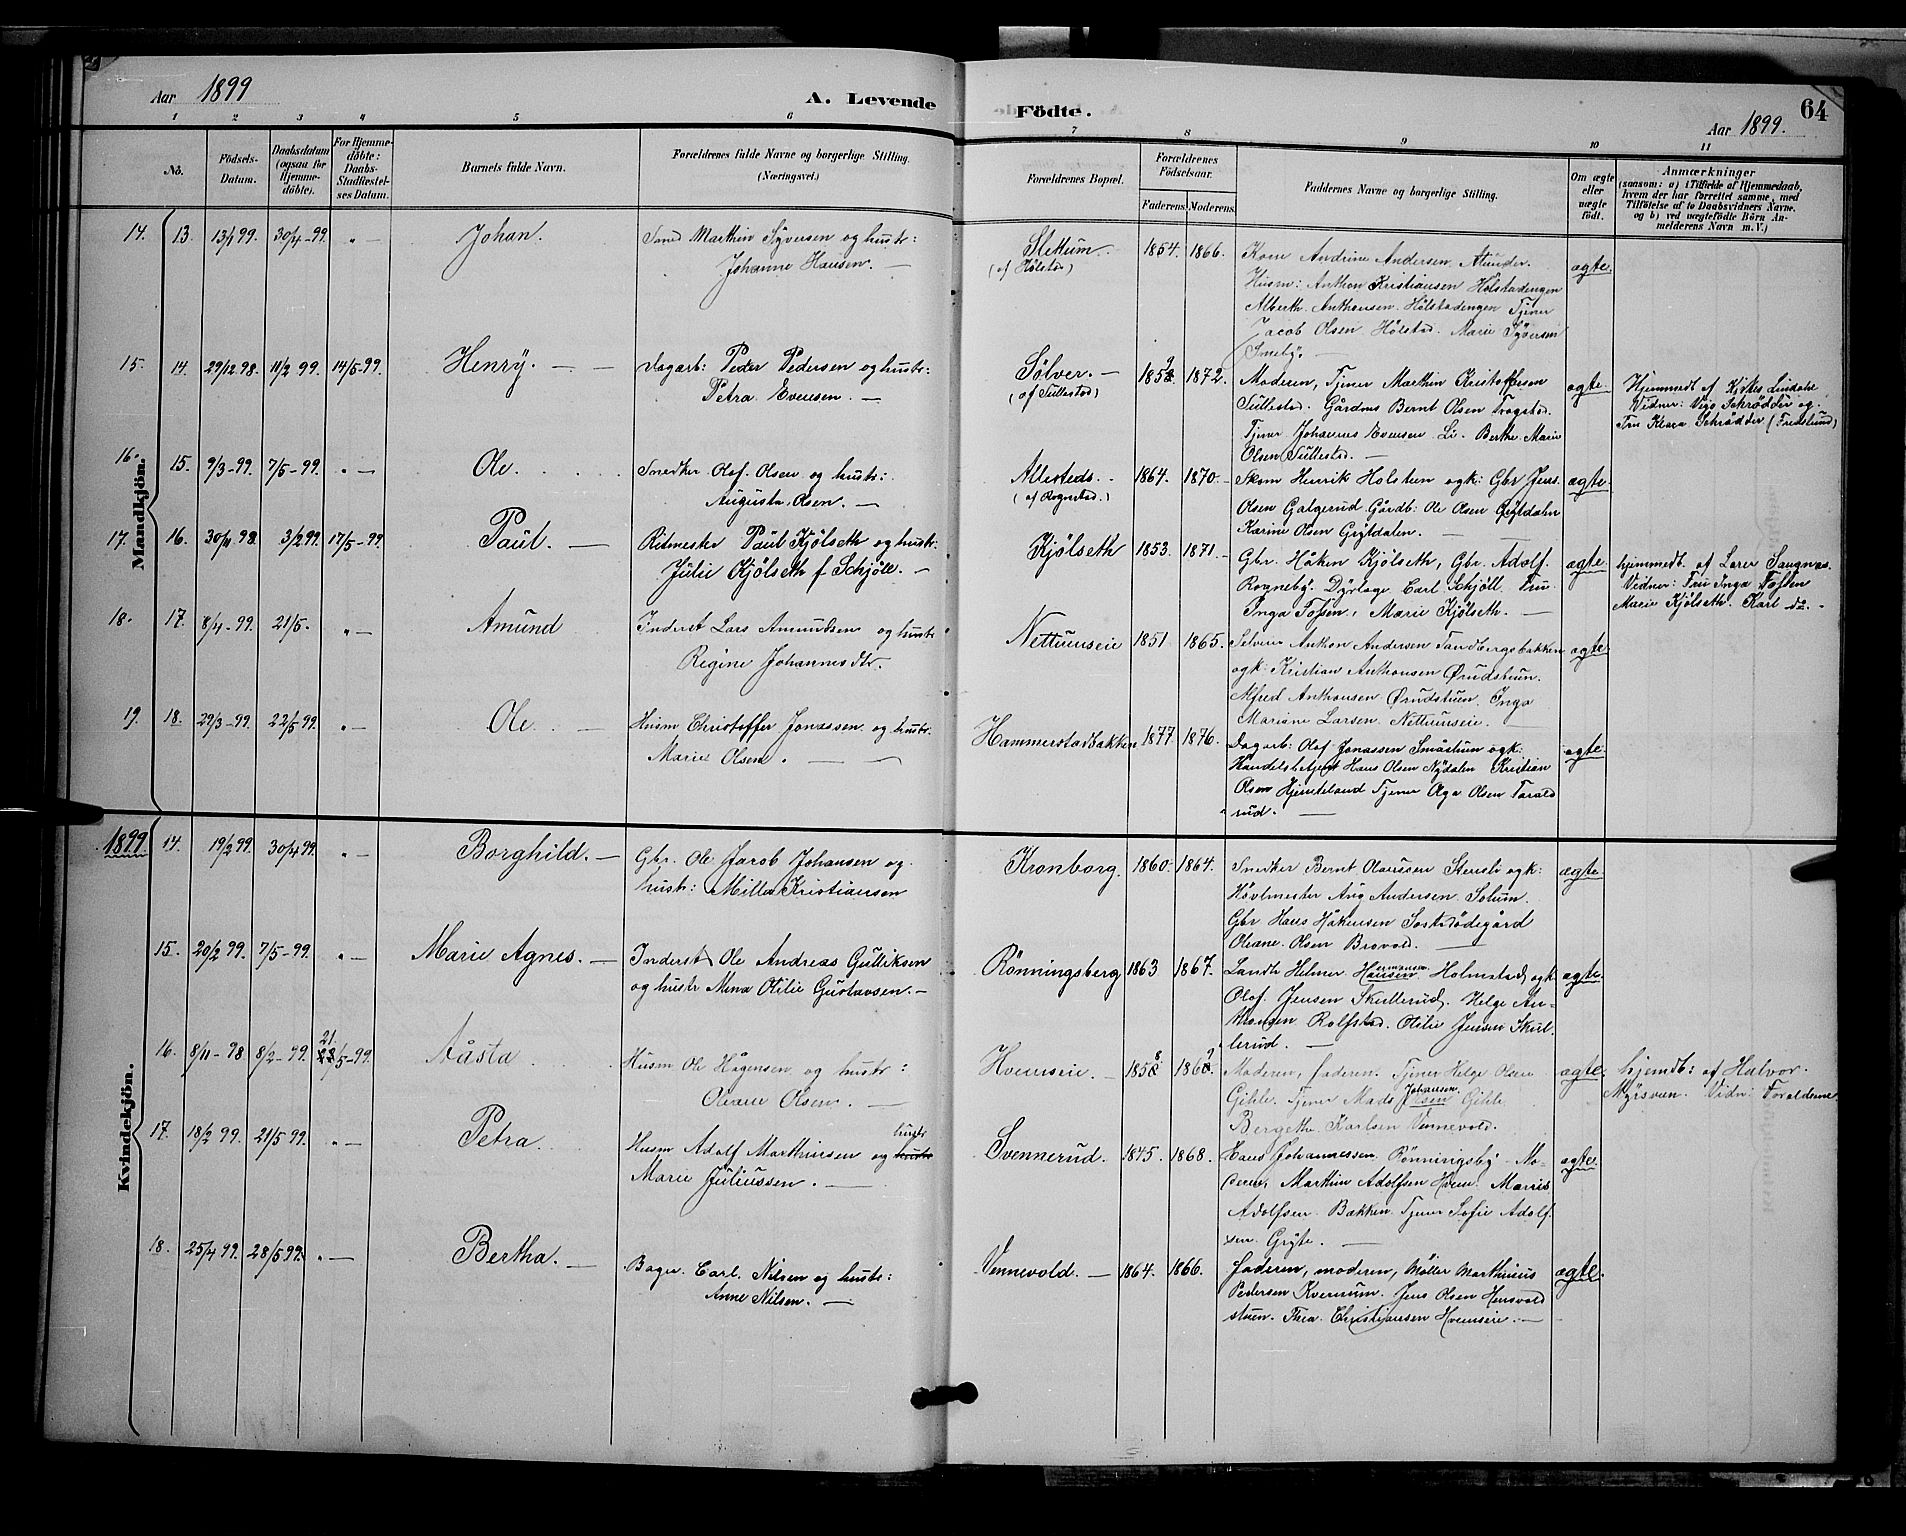 Aar 1899
A. Levende
Födte.
64
Aar 1899.
1 2 3 4 5 6 7 8 9 10 11
No.
Födsels-
Datum.
Daabsdatum
(ogsaa for
Hjemme-
döbte).
For Hjemme-
döbte:
Daabs-
Stadfæstel-
ses Datum.
Barnets fulde Navn.
Forældrenes fulde Navne og borgerlige Stilling.
(Næringsvei.)
Forældrenes Bopæl.
Forældrenes
Födselsaar.
Faderens. Moderens.
Faddernes Navne og borgerlige Stilling.
Om ægte
eller
uægte
født.
Anmærkninger
(saasom: a) i Tilfælde af Hjemmedaab,
hvem der har forrettet samme, med
Tilföielse af to Daabsvidners Navne.
og b) ved uægtefödte Börn An-
melderens Navn m. V.)
Mandkjön.
14. 13. 13/1 99. 30/4-99. " — Johan.
Smed Marthin Syversen og hustr:
Johanne Hansen. —
Slettum
(af Hölstad)
1854. 1866.
Kom Andrine Andersen
Husm: Anthon Kristiansen Hölstadengen
Alberth Anthonsen Hölstadengen Tjener
Jacob Olsen Hölstad. Marie Syversen
Smeby. —
ægte.
15. 14. 29/12 98. 11/2 99. 14/5-99. Henry. — —
Dagarb: Peder Pedersen og hustr:
Petra Evensen. —
Sölver. —
(af Tullestad)
1859 1872.
Moderen, Tjener Marthin Kristoffersen
Tullestad. Gårdms Bernt Olsen Trogstad.
Tjener Johannes Evensen Li. Berthe Marie
Olsen Tullestad. —
ægte.
Hjemmedt af Kirkes Lindahl
Vidner: Vigo Schrödder og
Fru Klara Schrödder (Fredslund)
16. 15. 9/3-99. 7/5-99. " — Ole
Snedker Olof Olsen og hustr:
Augusta Olsen. —
(af Rognstad.)
1864. 1870.
Skom Henrik Holstien ogk: Gbr Jens
Olsen Galgerud. Gårdb: Ole Olsen Grytdalen
Karine Olsen Grytdalen. —
ægte.
17. 16. 30/11 98. 3/2 99. 17/5-99. Paul. —
Ritmester Paul Kjölseth og hustr:
Julie Kjölseth f. Schjöll. —
Kjölseth
1853. 1871.
Gbr. Håken Kjölseth, Gbr. Adolf
Rogneby. Dyrlæge Carl Schjöll. Fru
Inga Tofsen, Marie Kjölseth. —
ægte.
hjemmedt. af Lærer Saugnæs.
Vidner: Fru Inga Tofsen
Marie Kjölseth. Karl do. -
18. 17. 8/4-99. 21/5. " — Amund
Inderst Lars Amundsen og hustr
Regine Johannesdtr.
Nettumseie
1851 1865.
Selveier Anthon Andersen Tandbergsbakken
ogk: Kristian Anthonsen Ørudstuen.
Alfred Anthonsen Ørudstuen. Inga
Mariane Larsen. Nettumseie. —
ægte.
19. 18. 29/3-99. 22/5 99. " — Ole. —
Husm Christoffer Jonassen og hustr:
Marie Olsen. —
Hammerstadbakken
1877 1876.
Dagarb: Olof Jonassen Småstuen ogk:
Handelsbetjent Hans Olsen Nydalen Kristian
Olsen Hjinteland Tjener Olga Olsen Tarald
rud. —
ægte.
Kvindekjön.
1899 14. 19/2 99. 30/4 99. " — Borghild. —
Gbr. Ole Jacob Johansen og
hustr: Milla Kristiansen
Kronborg.
1860. 1864.
Snedker Bernt Olaussen Stensli ogk:
Hövlmester Aug Andersen Solum.
Gbr Hans Håkensen Sostadödegård
Oleane Olsen Brovold. —
ægte
15. 20/2 99. 7/5-99. " — Marie Agnes. —
Inderst Ole Andreas Gulliksen
og hustr Mina Otilie Gustavsen. —
Rönningsberg
1863 1867.
Landh Helmer Hermansen Holmstad, ogk
Olof Jensen Skullerud, Helge An-
thonsen Rolfstad. Otilie Jensen Skul-
lerud. —
ægte
16. 8/11-98. 8/2-99. 21/5-99. Aåsta
Husm Ole Hågensen og hustr:
Oleane Olsen. —
Hvemseie. —
1858 1869.
Moderen, faderen. Tjener Helge Olsen
Gihle. Tjener Mads Johansen Gihle
Bergethe Karlsen Vennevold.
ægte.
hjemdt: af Halvor
Myrsven. Vidn: Forældrene
17. 18/2 99. 21/5 99. " — Petra.
Husm Adolf Marthinsen og hustr
Marie Juliussen. —
Svennerud.
1845. 1868.
Hans Johannessen Rönningsby Mo-
deren, Marthin Adolfsen Hvem. Marris
Adolfsen Bakken. Tjener Sofie Adolf
sen. Gryte. —
ægte.
18. 25/4 99. 28/5 99. " — Bertha. —
Bager Carl Nilsen og hustr:
Anne Nilsen. —
Vennevold. —
1864. 1866.
faderen, moderen, Möller Marthinius
Pedersen Kvernum. Jens Olsen Hensvold
stuen. Thea Christiansen Hvemseie. —
ægte.